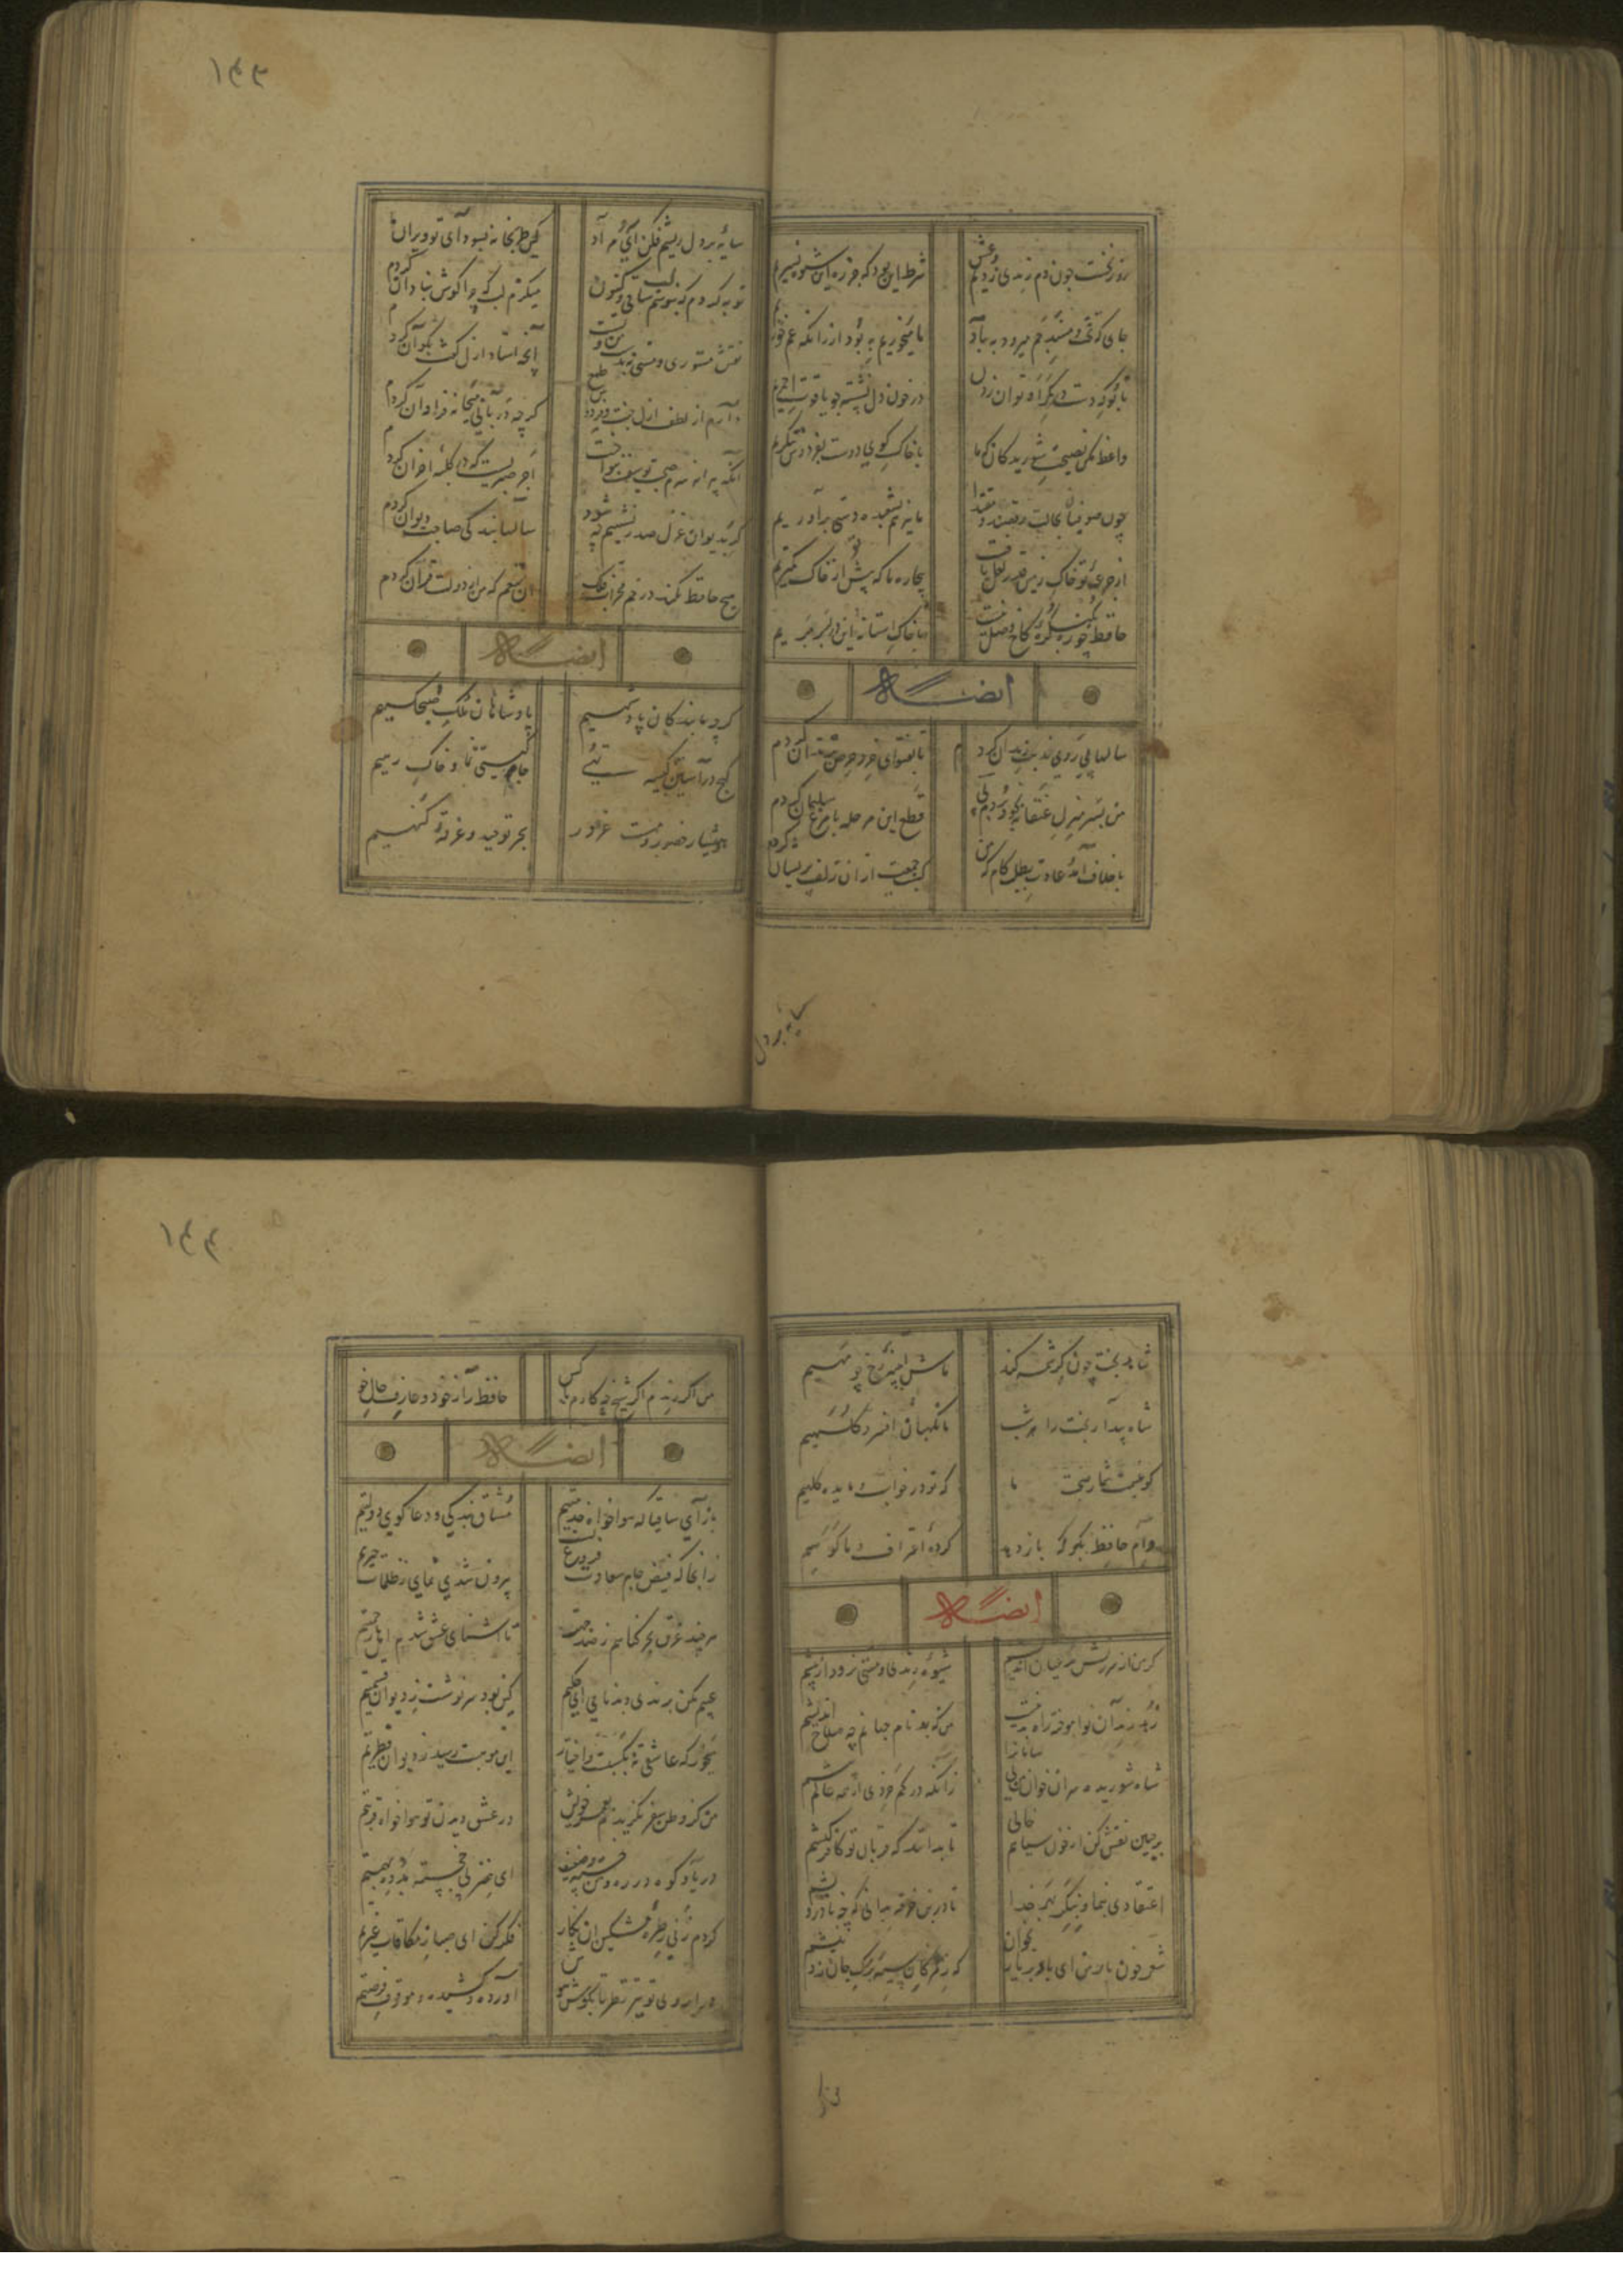 ۱۴۳
روز نخست چون دم رندی زدیم و عشق
شرط این بود که جز ره این شیوه نسپریم
جای که تخت و مسند جم میرود به باد
ما میخوریم به بود از آنکه غم خوریم
تا بو که دست در کمر او توان زدن
در خون دل نشسته چو یاقوت احمریم
واعظ مکن نصیحت شوریدگان که ما
با خاک کوی دوست بفردوس ننگریم
چون صوفیان بحالت و رقصند مقتدا
ما نیز هم بشعبده دستی برآوریم
از جرعه تو خاک زمین قدر لعل یافت
بیچاره ما که پیش تو از خاک کمتریم
حافظ چو ره بکنگره کاخ وصل نیست
با خاک استانه این در بسر بریم
ایضاً له
سالها پیروی مذهب رندان کردم
تا بفتوای خرد حرص بزندان کردم
من بسر منزل عنقا نه بخود بردم پی
قطع این مرحله با مرغ سلیمان کردم
با خلاف آمد عادت بطلب کام که من
کسب جمعیت از ان زلف پریشان کردم
سایه بر دل
سایه بر دل ریشم فکن ای مراد
که من این خانه بسودای تو ویران کردم
توبه کردم که نبوسم لب ساقی و کنون
میگزم لب که چرا گوش بنادان کردم
نقش مستوری و مستی نه بدست من و تست
آنچه استاد ازل گفت بکن آن کردم
دارم از لطف ازل جنت فردوس طمع
گرچه دربانی میخانه فراوان کردم
آنکه پیرانه سرم صحبت یوسف بنواخت
اجر صبریست که در کلبه احزان کردم
گر بدیوان غزل صدر نشینم چه شود
سالها بندگی صاحب دیوان کردم
هیچ حافظ نکند در خم محراب فلک
ان تنعم که من از دولت قرآن کردم
ایضاً له
گرچه ما بندگان پادشهیم
پادشاهان ملک صبحگهیم
گنج در آستین و کیسه تهی
جام گیتی نما و خاک رهیم
هوشیار حضور و مست غرور
بحر توحید و غرقه گنهیم
۱۴۴
شاهد بخت چون کرشمه کند
ماش آیینه رخ چو مهیم
شاه بیدار بخت را هر شب
ما نگهبان افسر و کلهیم
گو غنیمت شمار صحبت ما
که تو در خواب و ما بدیده گهیم
وام حافظ بگو که باز دهند
کرده اعتراف و ما گوهیم
ایضاً له
گر من از سرزنش مدعیان اندیشم
شیوه رندی و مستی نرود از پیشم
زهد رندان نوآموخته راهی بدهیست
من که بدنام جهانم چه صلاح اندیشم
شاه شوریده سران خوان من بی سامانرا
زآنکه در کم خردی از همه عالم بیشم
بر جبین نقش کن از خون دل من خالی
تا بدانند که قربان تو کافر کیشم
اعتقادی بنما و بگذر بهر خدا
تا درین خرقه ندانی که چه نادرویشم
شعر خونبار من ای باد بر یار بخوان
که ز مژگان سیه بر رگ جان زد نیشم
من اگر
من اگر رندم اگر شیخ چه کارم با کس
حافظ راز خود و عارف حال خویشم
ایضاً له
بازآی ساقیا که هواخواه خدمتیم
مشتاق بندگی و دعا گوی دولتیم
زانجا که فیض جام سعادت فروغ تست
بیرون شدی نمای ز ظلمات حیرتم
هر چند غرق بحر گناهم ز صد جهت
تا آشنای عشق شدم ز اهل رحمتم
عیبم مکن برندی و بدنامی ای حکیم
کین بود سرنوشت ز دیوان قسمتم
می خور که عاشقی نه بکسبست و اختیار
این موهبت رسید ز دیوان فطرتم
من کز وطن سفر نگزیدم بعمر خویش
در عشق دیدن تو هواخواه غربتم
دریا و کوه در ره و من خسته و ضعیف
ای خضر پی خجسته مدد ده بهمتم